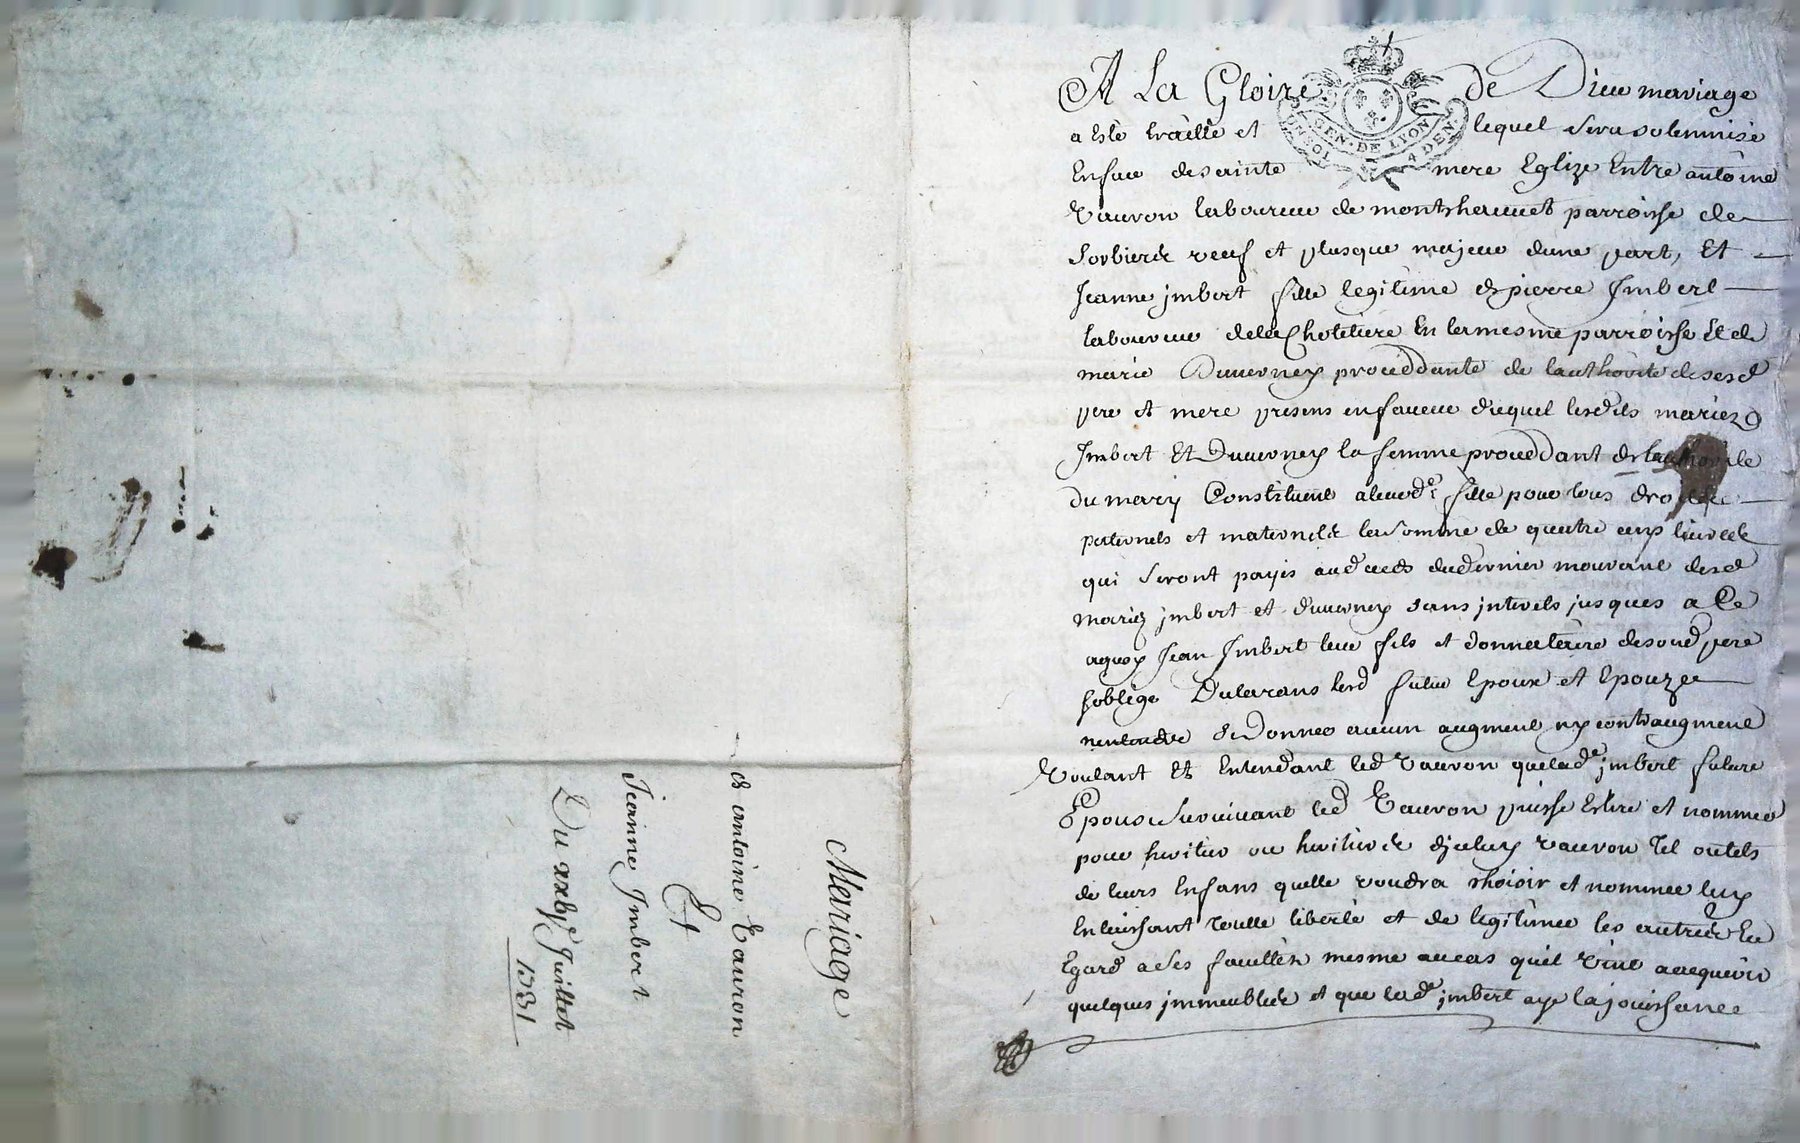 A La Gloire de Dieu mariage
a esté traitté et lequel sera solemnisé
Enface desainte mere Eglize Entre antoine
Vauron laboureur de montzhauuet parroisse de
Sorbierés veuf et plusque majeur dune part, Et
Jeanne jmbert fille legitime de pierre Jmbert
laboureur delachotetiere En lamesme parroisse Et de
marie Duuerney proceddante de lauthorité desesd
pere et mere presens enfaueur duquel lesdits mariez
Jmbert Et Duuerney la femme proceddant de lauthorité
du mary Constituent aleurde fille pour tous droits
paternels et maternels la Somme de quatre cens liures
qui Seront payés audeceds dudernier mourant desd
mariez jmbert et duuerney sans jnterets jusques a Ce
aquoy Jean Jmbert leur fils et donnataire desond pere
soblige Dulavans lesd futur Epoux et Epouze
se Donner aucun augment ny contraugment
Voulant Et Entendant led Vauron quelade jmbert future
Epouse Suruiuant led Vauron puisse Eslire et nommer
pour heritier ou heritiers djceluy vauron Tel outels
de leurs Enfans quelle voudra choisir et nommer luy
Enlaissant toutte liberté et de legitimer les autres Eu
Egard ases facultés mesme aucas quil Vint aacquerir
quelques jmmeubles et que lade jmbert aye lajouissance
GEN. DE LYON
UN SOL 4 DEN.
Mariage
de antoine Vauron
Et
Jeanne Jmbert
Du xxbje Juillet
1731